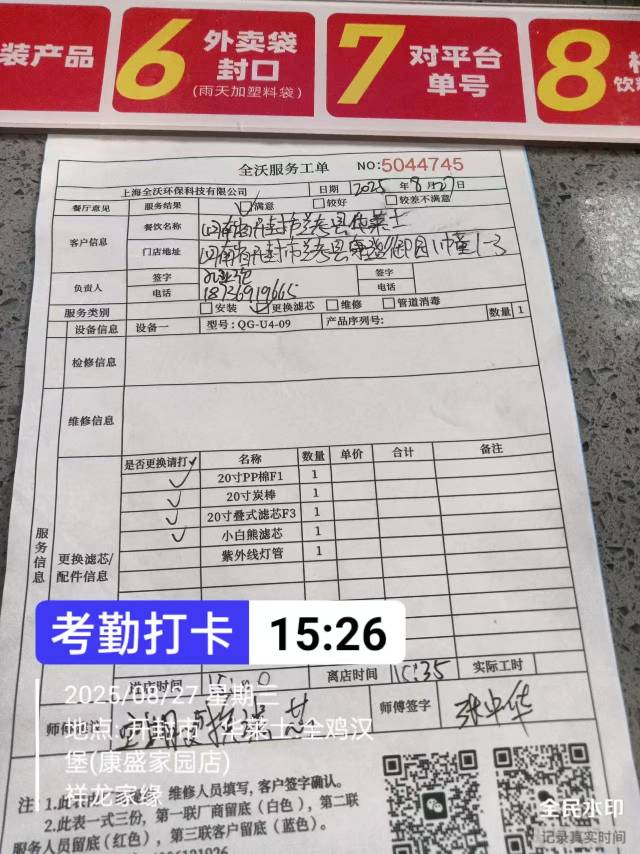 装产品
6 外卖袋
封口
(雨天加塑料袋)
7 对平台
单号
8
全沃服务工单 NO:5044745
上海全沃环保科技有限公司 日期 2025 年 8 月 27 日
餐厅意见 服务结果 ✓ 满意 较好 较差不满意
客户信息 餐饮名称 河南省开封市兰考县华莱士
门店地址 河南省开封市兰考县
负责人 签字 签字
电话 18736919665 电话
服务类别 安装 ✓ 更换滤芯 维修 管道消毒
设备信息 设备一 型号:QG-U4-09 产品序列号: 数量 1
检修信息
维修信息
服务信息
更换滤芯/
配件信息
是否更换请打✓ 名称 数量 单价 合计 备注
✓ 20寸PP棉F1 1
✓ 20寸炭棒 1
✓ 20寸叠式滤芯F3 1
✓ 小白熊滤芯 1
紫外线灯管 1
考勤打卡 15:26
进店时间 离店时间 15:35 实际工时
2025/08/27 星期三
师傅签字 张中华
地点:开封市·华莱士·全鸡汉
堡(康盛家园店)
祥龙家缘
注:
维修人员填写,客户签字确认。
2.此表一式三份,第一联厂商留底(白色),第二联
服务人员留底(红色),第三联客户留底(蓝色)。
全民水印
记录真实时间